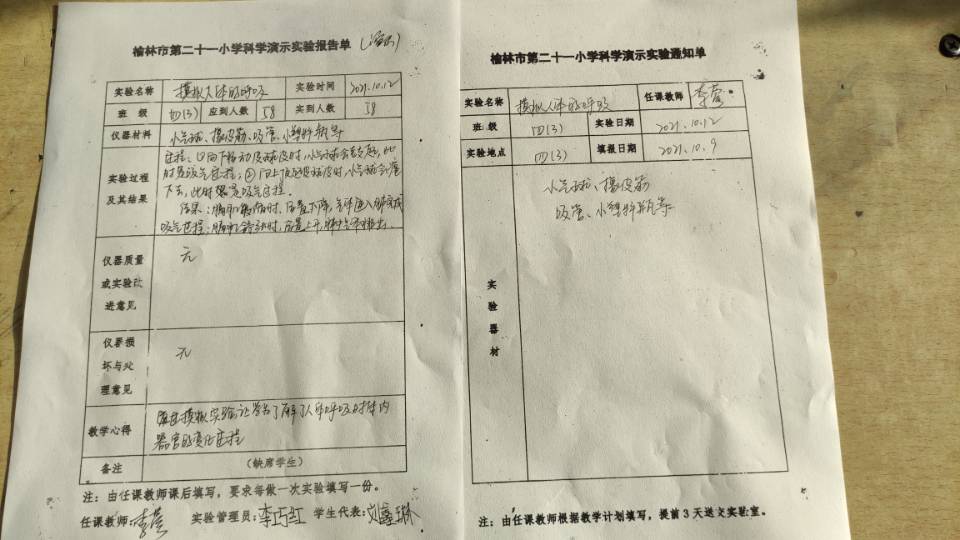 榆林市第二十一小学科学演示实验报告单 (演示)
实验名称 模拟人体的呼吸 实验时间 2021.10.12
班 级 四(3) 应到人数 58 实到人数 58
仪器材料 小气球、橡皮筋、吸管、小塑料瓶等
实验过程及其结果
过程:①向下移动皮球皮时,小气球会
下去,此时是
结果:
吸气过程;
仪器质量或实验改进意见 无
仪器损坏与处理意见 无
教学心得 通过模拟实验让学生了解了人体呼吸时体内
器官的变化过程
备注 (缺席学生)
注:由任课教师课后填写,要求每做一次实验填写一份。
任课教师: 实验管理员:李巧红 学生代表:刘
榆林市第二十一小学科学演示实验通知单
实验名称 模拟人体的呼吸 任课教师 李
班 级 四(3) 实验日期 2021.10.12
实验地点 四(3) 填报日期 2021.10.9
实验器材
小气球、橡皮筋
吸管、小塑料瓶等
注:由任课教师根据教学计划填写,提前3天送交实验室。